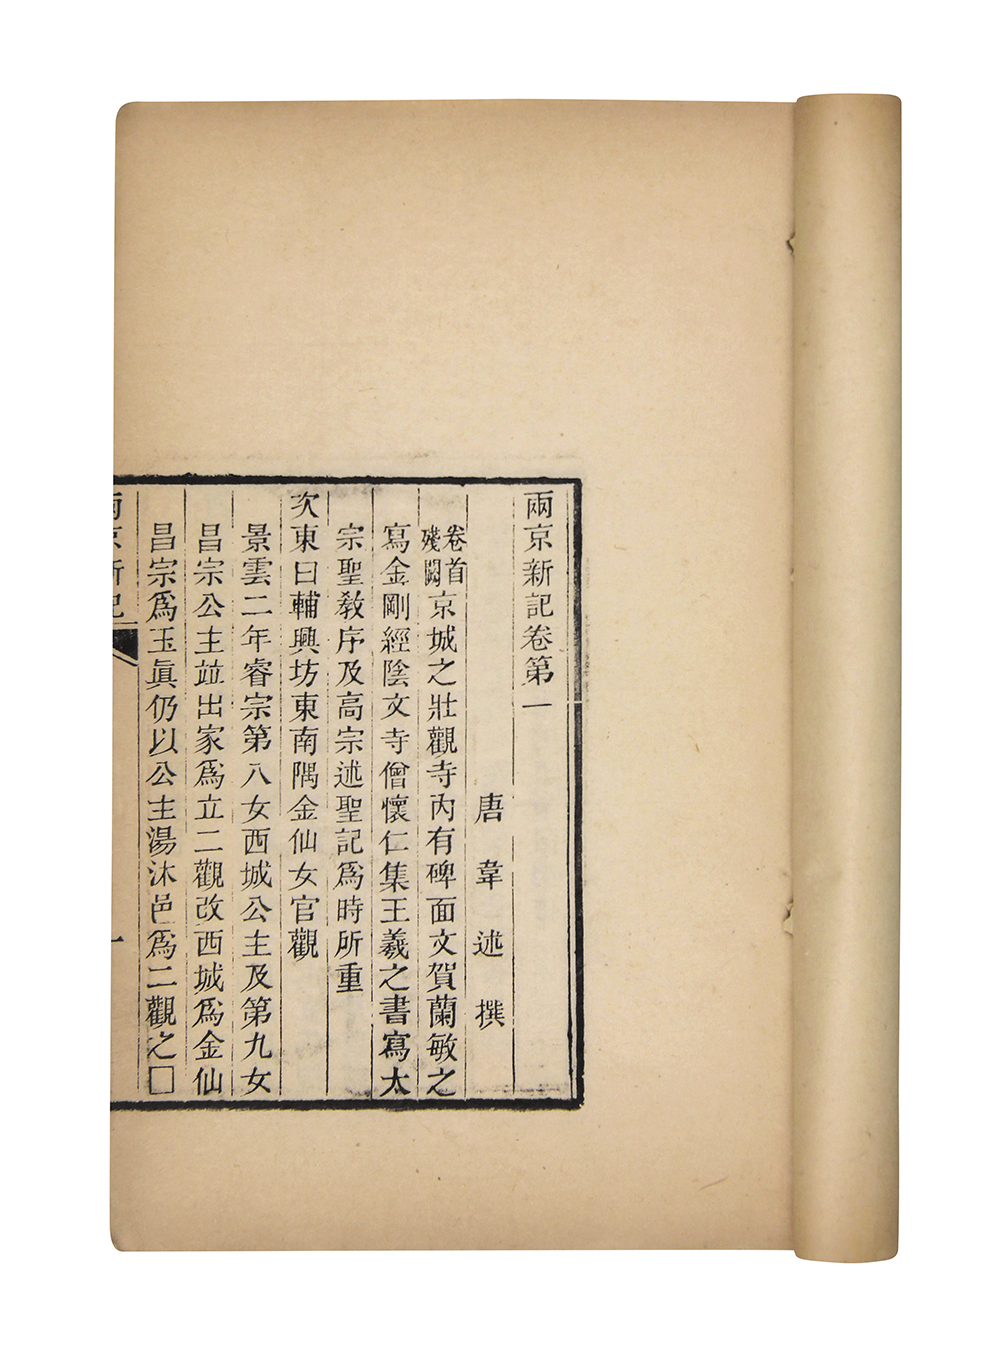 兩京新記卷第一
唐韋述撰
卷首殘闕京城之壯觀寺內有碑面文賀蘭敏之
寫金剛經陰文寺僧懷仁集王羲之書寫太
宗聖教序及高宗述聖記爲時所重
次東曰輔興坊東南隅金仙女官觀
景雲二年睿宗第八女西城公主及第九女
昌宗公主竝出家爲立二觀改西城爲金仙
昌宗爲玉眞仍以公主湯沐邑爲二觀之□
兩京新記
一